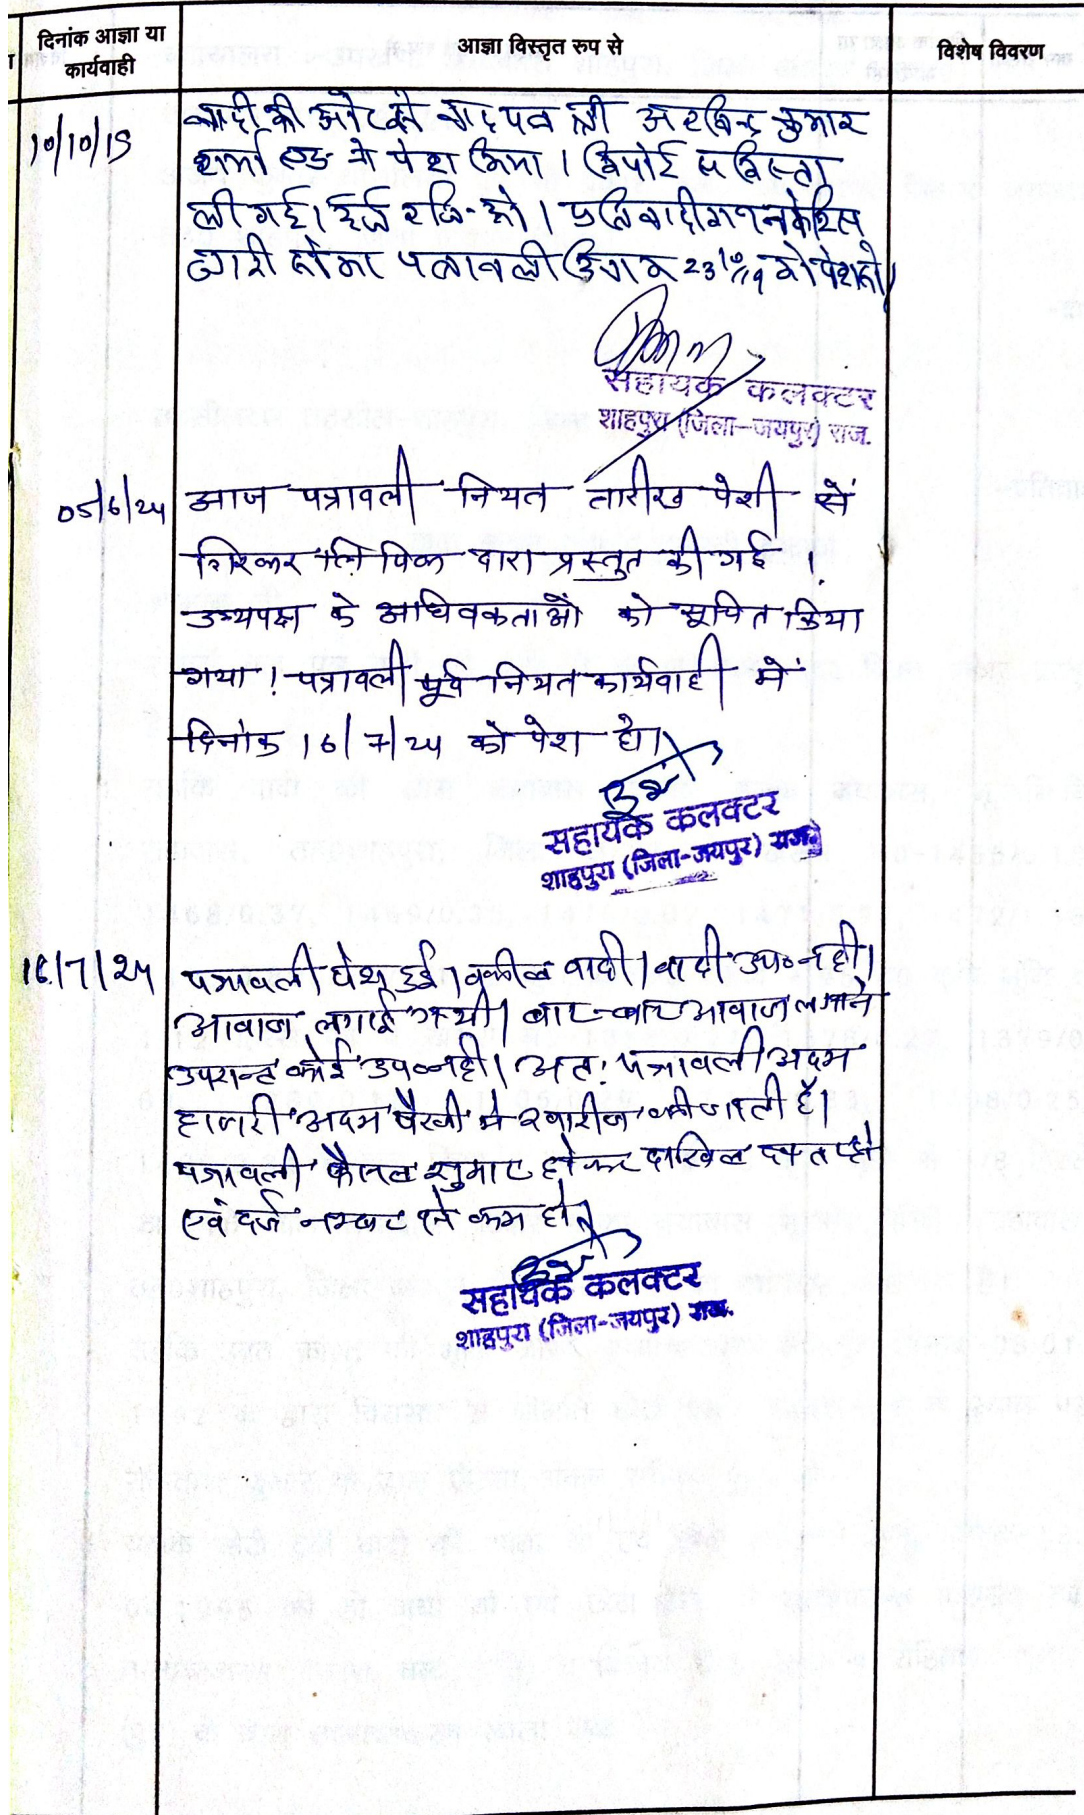 दिनांक आज्ञा या
कार्यवाही
आज्ञा विस्तृत रुप से
विशेष विवरण
10/10/19
वादी की ओर से वाद पत्र श्री अरविन्द कुमार
शर्मा एड ने पेश किया। रिपोर्ट सरिस्ता
ली गई। दर्ज रजि. हो। प्रतिवादीगण नोटिस
जारी होकर पत्रावली दिनांक 23/10/19 को पेश हो।
सहायक कलक्टर
शाहपुरा (जिला-जयपुर) राज.
05/6/24
आज पत्रावली नियत तारीख पेशी से
लिपिक द्वारा प्रस्तुत की गई।
उभयपक्ष के अधिवक्ताओं को सूचित किया
गया! पत्रावली पूर्व नियत कार्यवाही में
दिनांक 16/7/24 को पेश हो।
सहायक कलक्टर
शाहपुरा (जिला-जयपुर) राज.
16/7/24
पत्रावली पेश हुई। वकील वादी। वादी उप० नही।
आवाज लगाई गयी। बार-बार आवाज लगाने
उपरान्त कोई उप० नही। अतः पत्रावली अदम
हाजरी अदम पैरवी मे खारीज की जाती है।
पत्रावली फैसल शुमार होकर दाखिल दफ्तर हो
एवं दर्ज नम्बर से कम हो।
सहायक कलक्टर
शाहपुरा (जिला-जयपुर) राज.